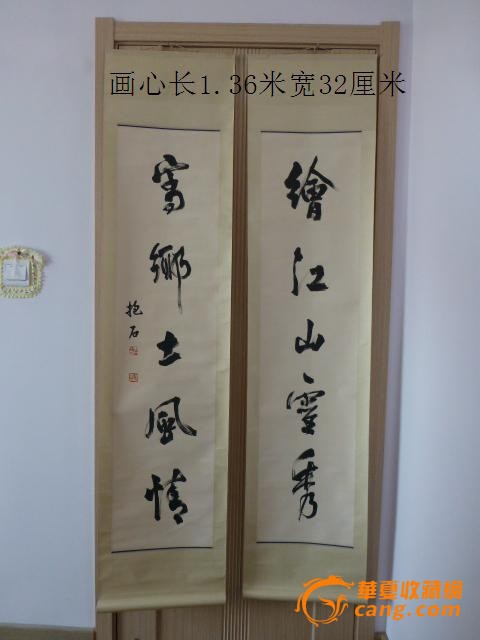 画心长1.36米宽32厘米
繪江山靈秀
寫鄉土風情
抱石
華夏收藏網
cang.com